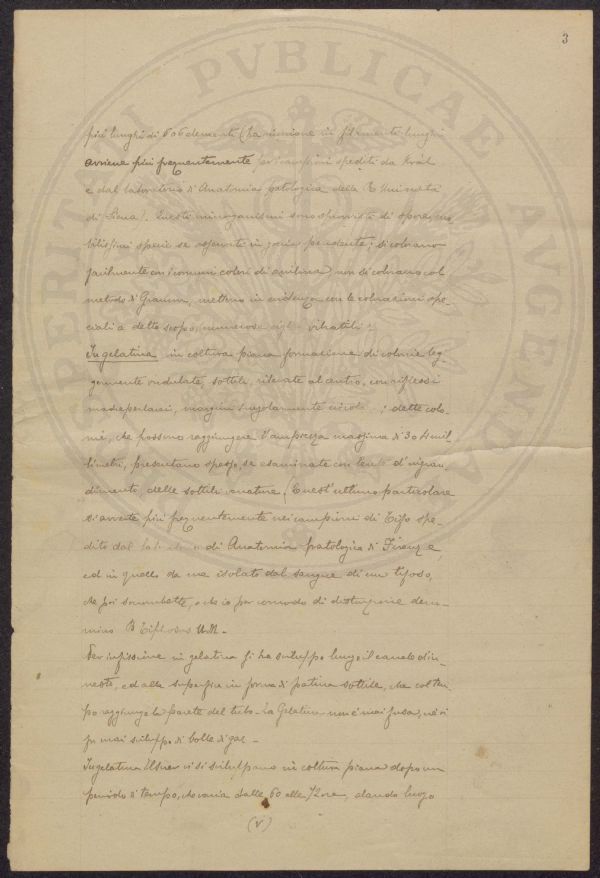 3
più lunghi di 5 o 6 elementi (la riunione in filamenti lunghi
avviene più frequentemente pei campioni spediti da Kràl
e dal laboratorio di Anatomia patologica della R. Università
di Siena). Questi microganismi sono sprovvisti di spore, mo
bilissimi specie se osservati in goccia pendente; si colorano
facilmente con i comuni colori di anilina, non si colorano col
metodo di Gramm, mettono in evidenza con le colorazioni spe-
ciali a detto scopo, numerose ciglia vibratili;
In gelatina in coltura piana formazione di colonie leg-
germente ondulate, sottili, rilevate al centro, con riflessi
madreperlacei, margini irregolarmente ; dette colo-
nie, che possono raggiungere l'ampiezza massima di 3 o 4 mil-
limetri, presentano spesso, se esaminate con lente d'ingran-
dimento, delle sottili venature. (Quest'ultimo particolare
si avverte più frequentemente nei campioni di Tifo spe-
dito dal laboratorio di Anatomia patologica di Firenze,
ed in quello da me isolato dal sangue di un tifoso,
che poi soccombette, e che io per comodo di distinzione deno-
mino B. Tiphosus
Per infissione in gelatina si ha sviluppo lungo il canale d'in-
nesto, ed alla superficie in forma di patina sottile, che col tem-
po raggiunge la parete del tubo. La gelatina non è mai fusa, nè vi
fu mai sviluppo di bolle di gas.
In gelatina Elsner vi si sviluppano in coltura piana dopo un
periodo di tempo, che varia dalle 60 alle 72 ore, dando luogo
(V)
PROSPERITATI PVBLICAE AVGENDAE